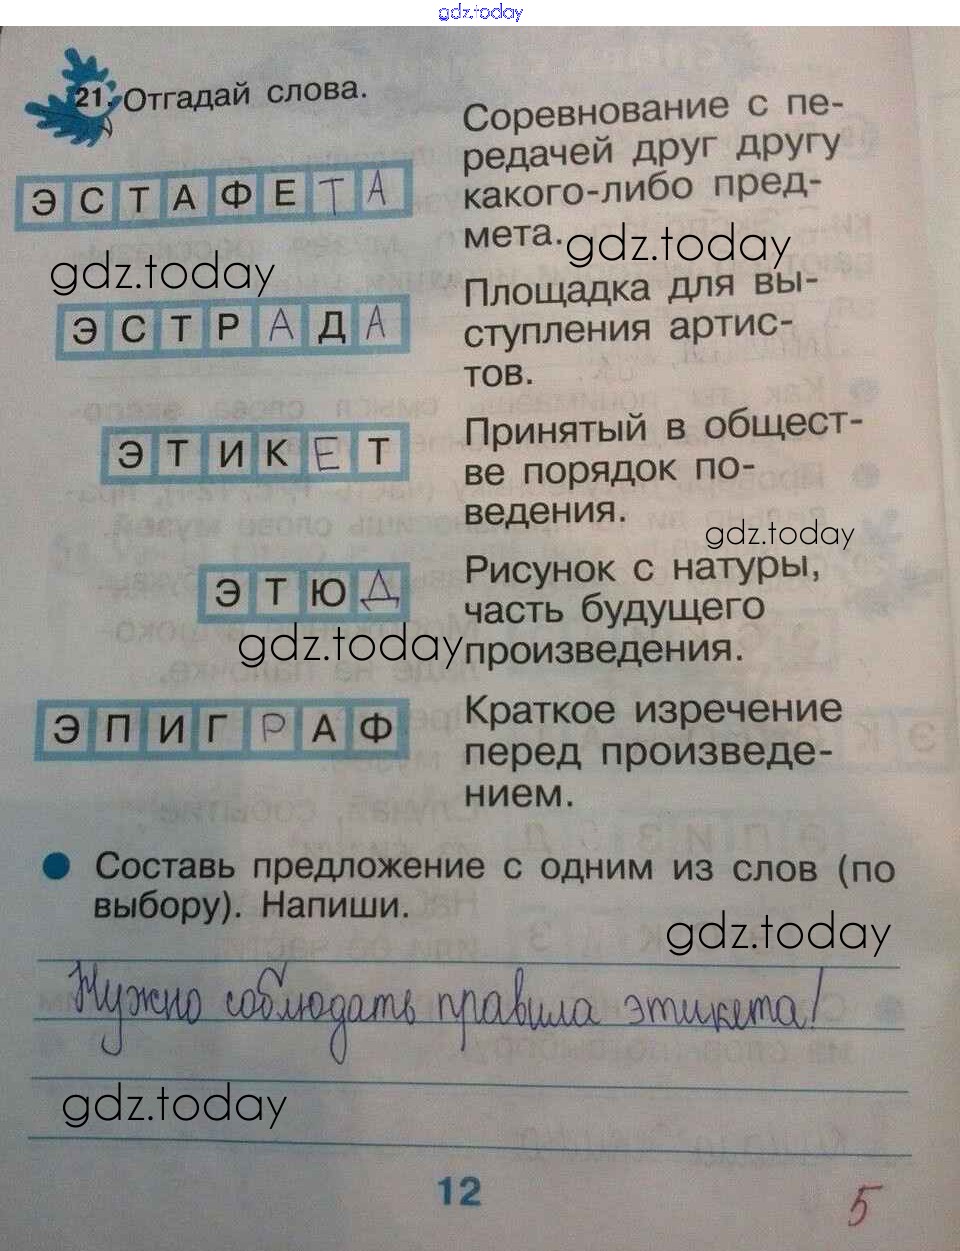 gdz.today
21. Отгадай слова.
ЭСТАФЕТА
Соревнование с пе-
редачей друг другу
какого-либо пред-
мета.
gdz.today
gdz.today
ЭСТРАДА
Площадка для вы-
ступления артис-
тов.
ЭТИКЕТ
Принятый в общест-
ве порядок по-
ведения.
gdz.today
ЭТЮД
Рисунок с натуры,
часть будущего
произведения.
gdz.today
ЭПИГРАФ
Краткое изречение
перед произведе-
нием.
Составь предложение с одним из слов (по
выбору). Напиши.
gdz.today
Нужно соблюдать правила этикета!
gdz.today
12
5